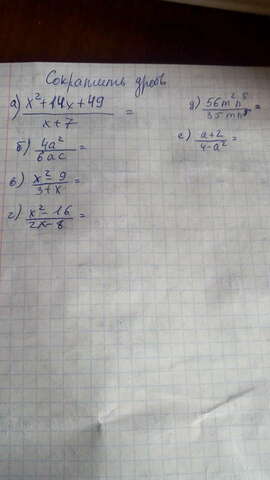 Сократить дробь
а) (x² + 14x + 49) / (x + 7) =
б) 4a² / 6ac =
в) (x² - 9) / (3 + x) =
г) (x² - 16) / (2x - 8) =
д) 56m²n⁵ / 35mn⁵ =
е) (a + 2) / (4 - a²) =